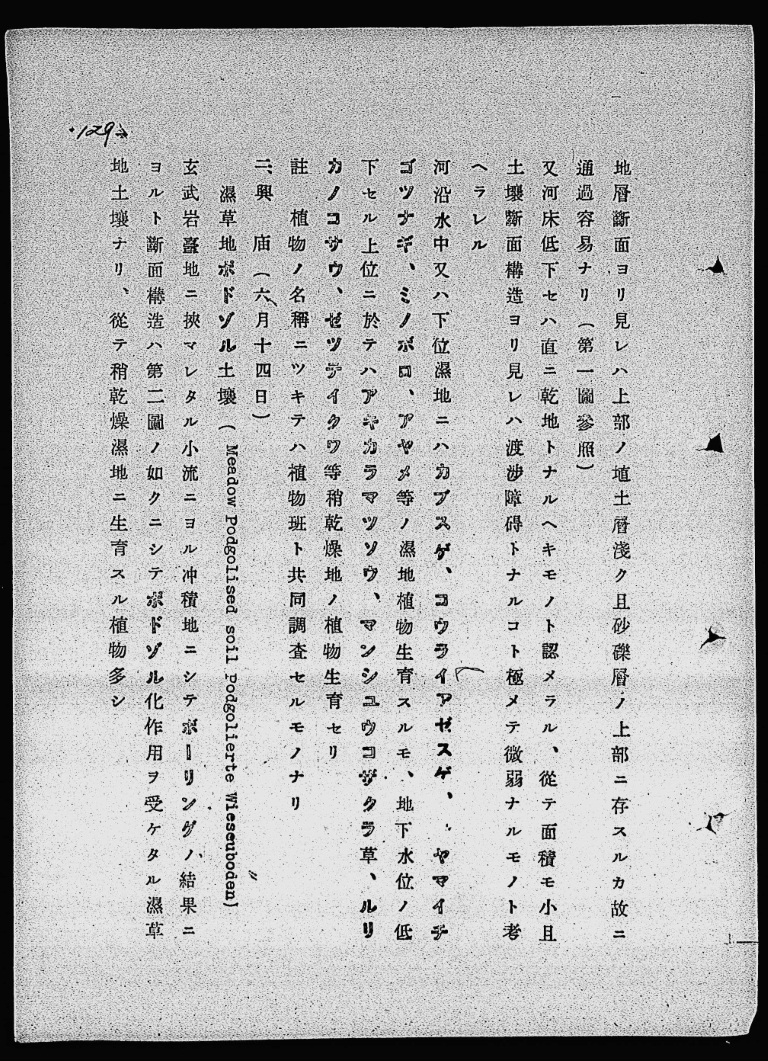 129
地層斷面ヨリ見レハ上部ノ埴土層淺ク且砂礫層ノ上部ニ存スルカ故ニ
通過容易ナリ（第一圖參照）
又河床低下セハ直ニ乾地トナルヘキモノト認メラル、從テ面積モ小且
土壤斷面構造ヨリ見レハ渡渉障碍トナルコト極メテ微弱ナルモノト考
ヘラレル
河沿水中又ハ下位濕地ニハカブスゲ、コウライアゼスゲ、ヤマイチ
ゴツナギ、ミノボロ、アヤメ等ノ濕地植物生育スルモ、地下水位ノ低
下セル上位ニ於テハアキカラマツソウ、マンシユウコザクラ草、ルリ
カノコサウ、ゼツテイクワ等稍乾燥地ノ植物生育セリ
註 植物ノ名稱ニツキテハ植物班ト共同調査セルモノナリ
二、興 庙（六月十四日）
濕草地ポドゾル土壤（Meadow Podgolised soil Podgolierte Wieseuboden）
玄武岩臺地ニ挾マレタル小流ニヨル冲積地ニシテボーリングノ結果ニ
ヨルト斷面構造ハ第二圖ノ如クニシテポドゾル化作用ヲ受ケタル濕草
地土壤ナリ、從テ稍乾燥濕地ニ生育スル植物多シ